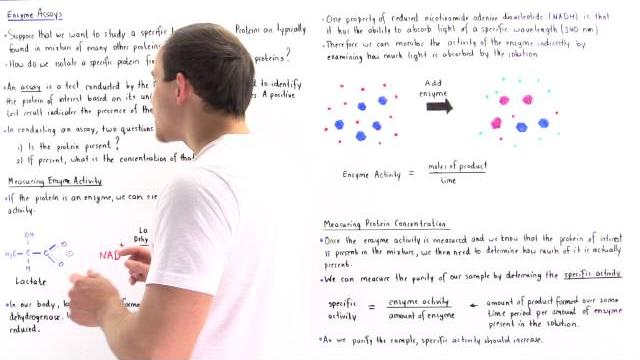 Enzyme Assays
• Suppose that we want to study a specific
Proteins are typically
found in mixture of many other proteins
• How do we isolate a specific protein
proteins?
• An assay is a test conducted by the
to identify
the protein of interest based on its
A positive
test result indicates the presence of the
• In conducting an assay, two questions
1) Is the protein present?
2) If present, what is the concentration of that
Measuring Enzyme Activity
• If the protein is an enzyme, we can
activity.
OH
H₃C - C - C
O
O
H
NAD+
La
Dehy
Lactate
• In our body,
dehydrogenase.
reduced.
• One property of reduced nicotinamide adenine dinucleotide (NADH) is that
it has the ability to absorb light of a specific wavelength (340 nm)
• Therefore we can monitor the activity of the enzyme indirectly by
examining how much light is absorbed by the solution
Add
enzyme
Enzyme Activity = moles of product
time
Measuring Protein Concentration
• Once the enzyme activity is measured and we know that the protein of interest
is present in the mixture, we then need to determine how much of it is actually
present.
• We can measure the purity of our sample by determining the specific activity
specific activity = enzyme activity
amount of enzyme
← amount of product formed over some
time period per amount of enzyme
present in the solution.
• As we purify the sample, specific activity should increase.